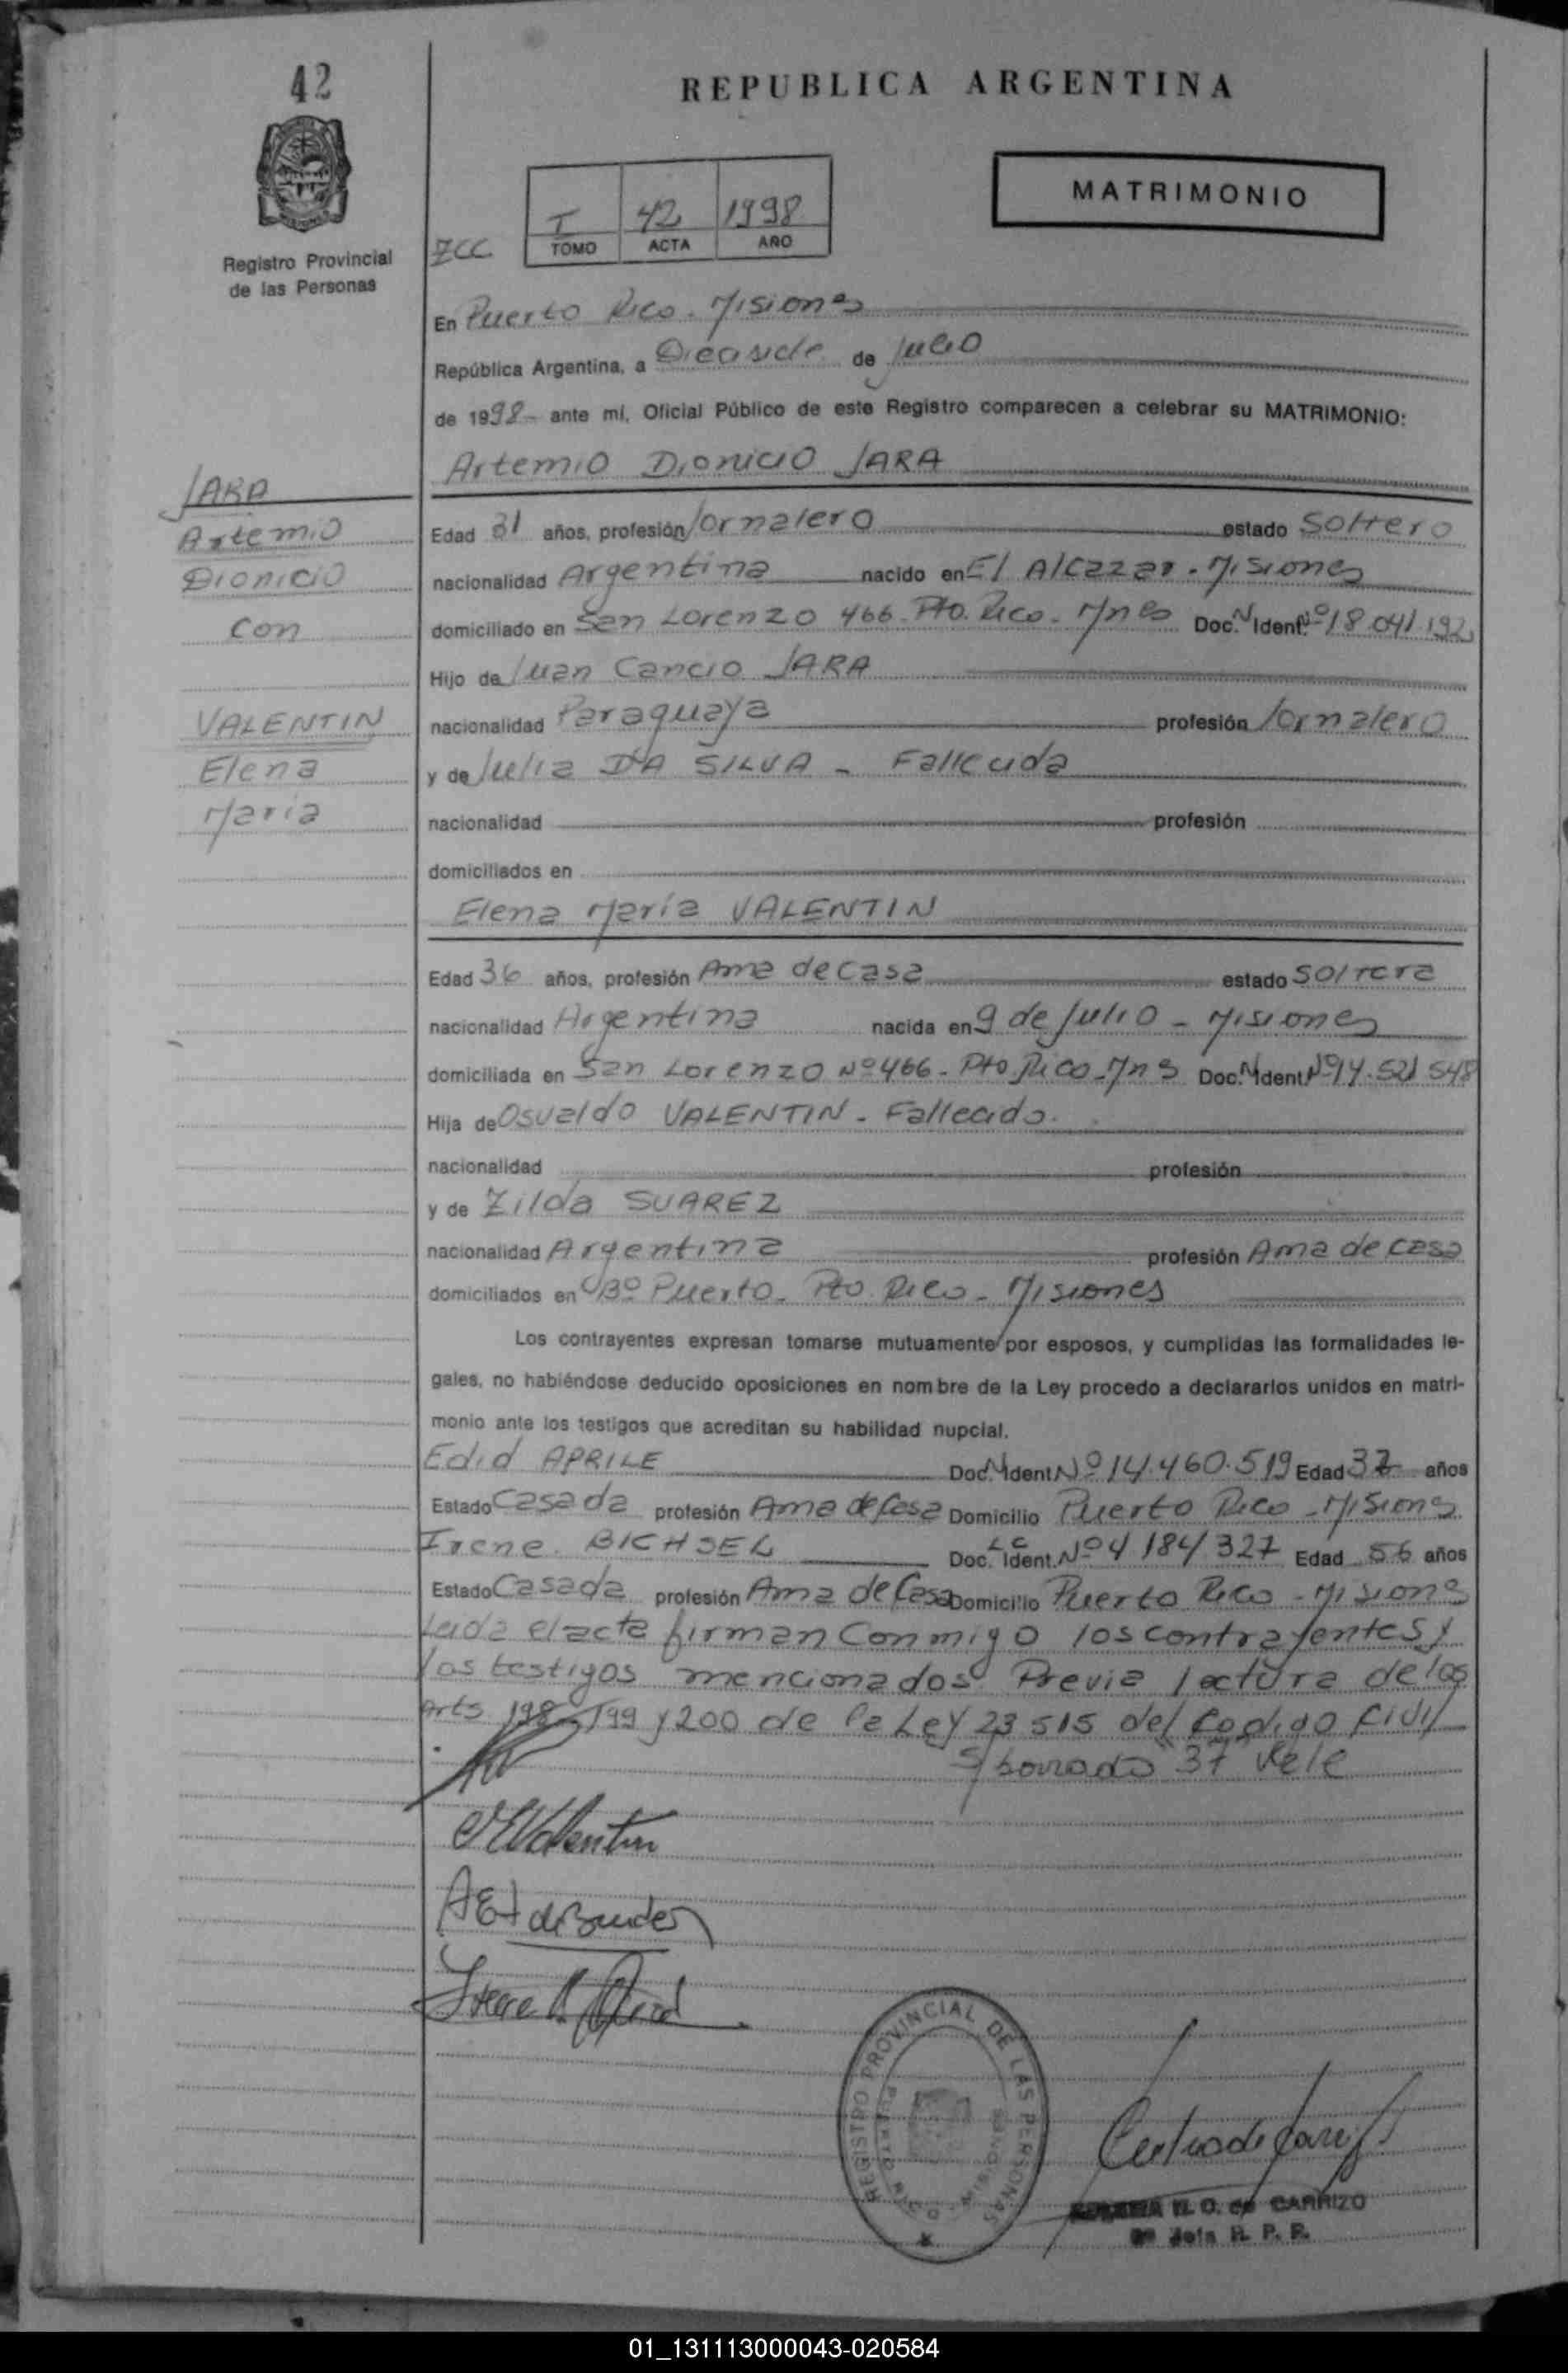 42
REPUBLICA ARGENTINA
MATRIMONIO
I 42 1998
TOMO ACTA AÑO
Registro Provincial
de las Personas
En Puerto Rico - Misiones
República Argentina, a de Julio
de 1998 - ante mí, Oficial Público de este Registro comparecen a celebrar su MATRIMONIO:
Artemio Dionicio JARA
JARA
Artemio
Dionicio
con
VALENTIN
Elena
María
Edad 31 años, profesión Jornalero estado Soltero
nacionalidad Argentina nacido en El Alcazar - Misiones
domiciliado en San Lorenzo 466 - Pto. Rico - Mnes Doc. N Ident. Nº 18.041.192
Hijo de Juan Cancio JARA
nacionalidad Paraguaya profesión Jornalero
y de Julia DA SILVA - Fallecida
nacionalidad profesión
domiciliados en
Elena María VALENTIN
Edad 36 años, profesión Ama de casa estado Soltera
nacionalidad Argentina nacida en 9 de Julio - Misiones
domiciliada en San Lorenzo Nº 466 - Pto Rico - Mns Doc. N Ident. Nº 14.521.548
Hija de Osvaldo VALENTIN - Fallecido.
nacionalidad profesión
y de Zilda SUAREZ
nacionalidad Argentina profesión Ama de casa
domiciliados en Bº Puerto - Pto. Rico - Misiones
Los contrayentes expresan tomarse mutuamente por esposos, y cumplidas las formalidades le-
gales, no habiéndose deducido oposiciones en nombre de la Ley procedo a declararlos unidos en matri-
monio ante los testigos que acreditan su habilidad nupcial.
Edid APRILE Doc. N Ident. Nº 14.460.519 Edad 37 años
Estado Casada profesión Ama de Casa Domicilio Puerto Rico - Misiones
Irene BICHSEL Doc. LC Ident. Nº 4.184.327 Edad 56 años
Estado Casada profesión Ama de Casa Domicilio Puerto Rico - Misiones
Leida el acta firman conmigo los contrayentes y
los testigos mencionados. Previa lectura de los
Arts. 198, 199 y 200 de la Ley 23.515 del Codigo Civil
S/borrado "37" Vale
REGISTRO PROVINCIAL DE LAS PERSONAS
PUERTO RICO - MISIONES
N. O. de CARRIZO
Jefa R. P. P.
01_131113000043-020584